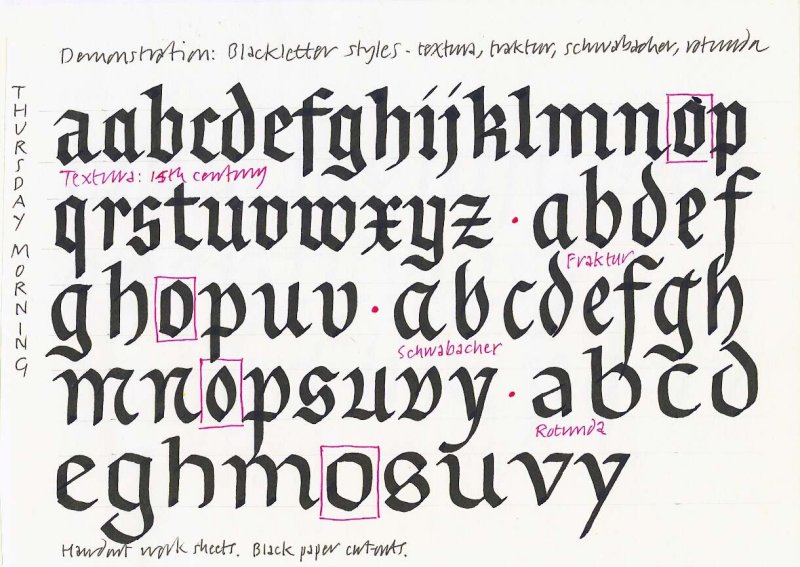 Demonstration: Blackletter styles - textura, fraktur, schwabacher, rotunda
THURSDAY MORNING
aabcdefghijklmnop
Textura: 15th century
qrstuvwxyz · abdef
Fraktur
ghopuv · abcdefgh
Schwabacher
mnopsuvy · abcd
Rotunda
eghmosuvy
Handout work sheets. Black paper cut-outs.